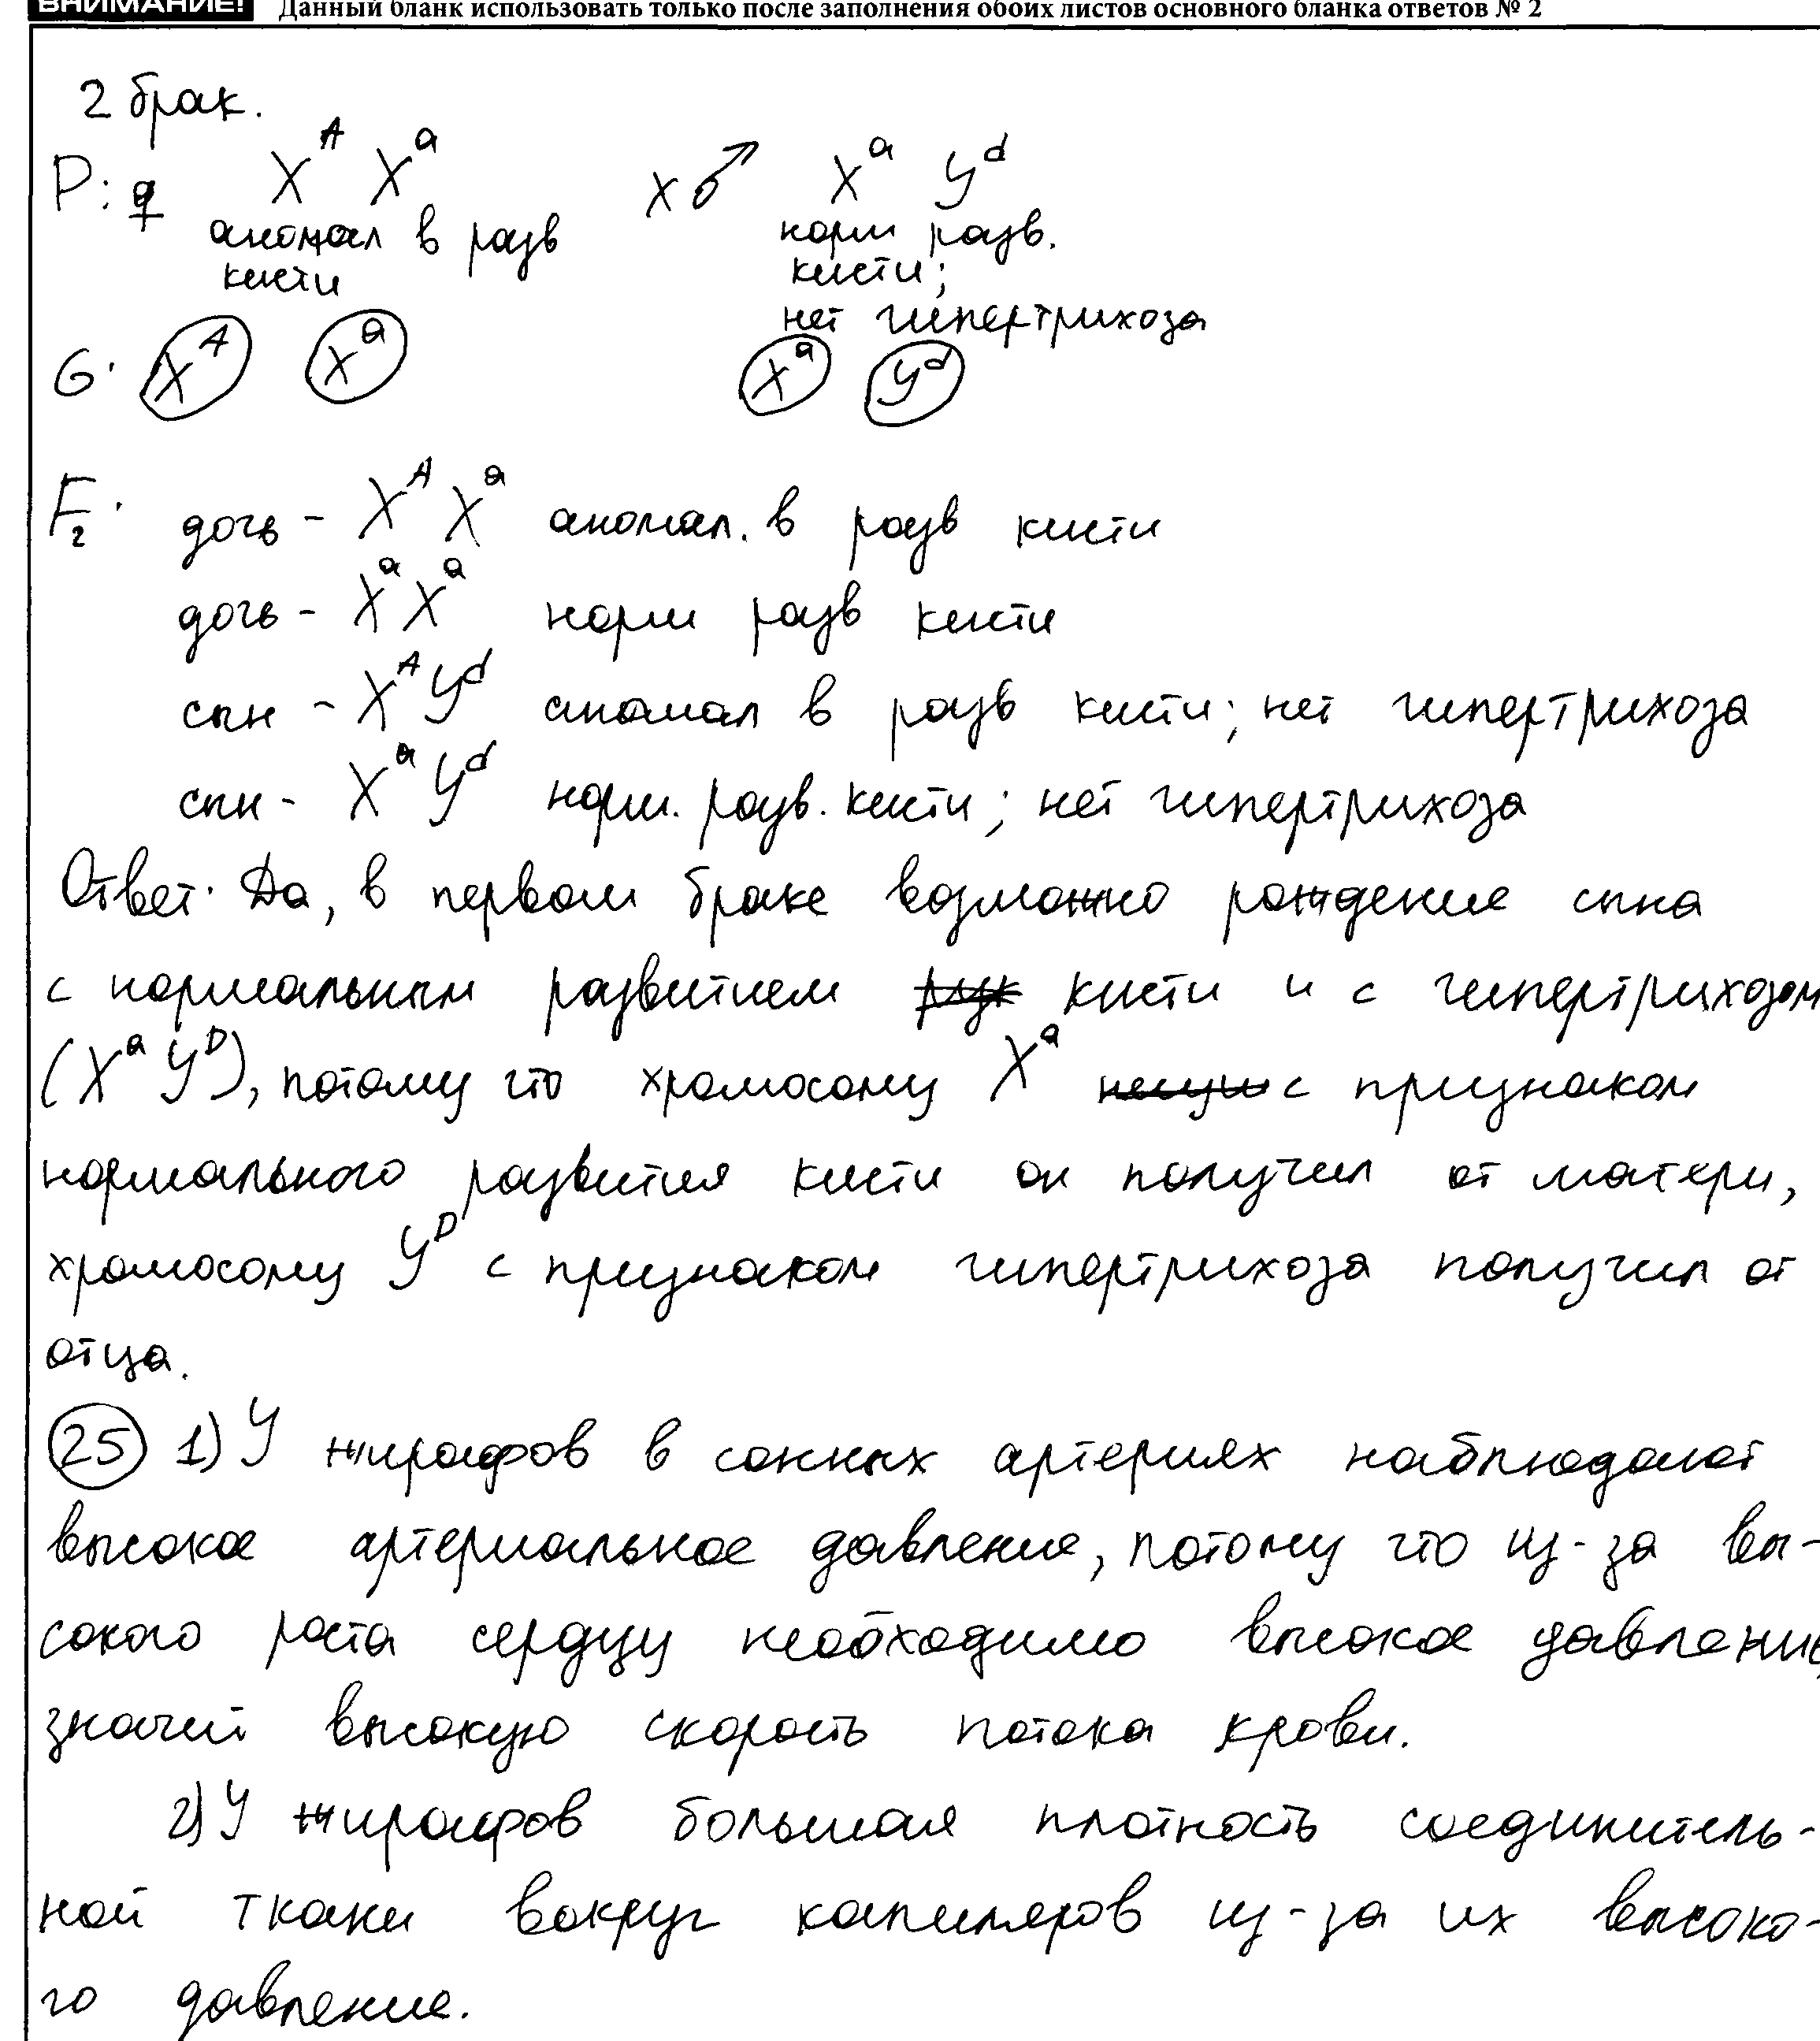 ВНИМАНИЕ! Данный бланк использовать только после заполнения обоих листов основного бланка ответов № 2
2 брак.
P: ♀ X^A X^a x ♂ X^a Y^d
аномал в разв норм разв.
кисти кисти;
нет гипертрихоза
G: X^A X^a X^a Y^d
F₂: дочь - X^A X^a аномал. в разв кисти
дочь - X^a X^a норм разв кисти
сын - X^A Y^d аномал в разв кисти; нет гипертрихоза
сын - X^a Y^d норм. разв. кисти; нет гипертрихоза
Ответ: Да, в первом браке возможно рождение сына
с нормальным развитием кисти и с гипертрихозом
(X^a Y^D), потому что хромосому X^a с признаком
нормального развития кисти он получил от матери,
хромосому Y^D с признаком гипертрихоза получил от
отца.
25 1) У жирафов в сонных артериях наблюдают
высокое артериальное давление, потому что из-за вы-
сокого роста сердцу необходимо высокое давление,
значит высокую скорость потока крови.
2) У жирафов большая плотность соединитель-
ной ткани вокруг капилляров из-за их высоко-
го давление.